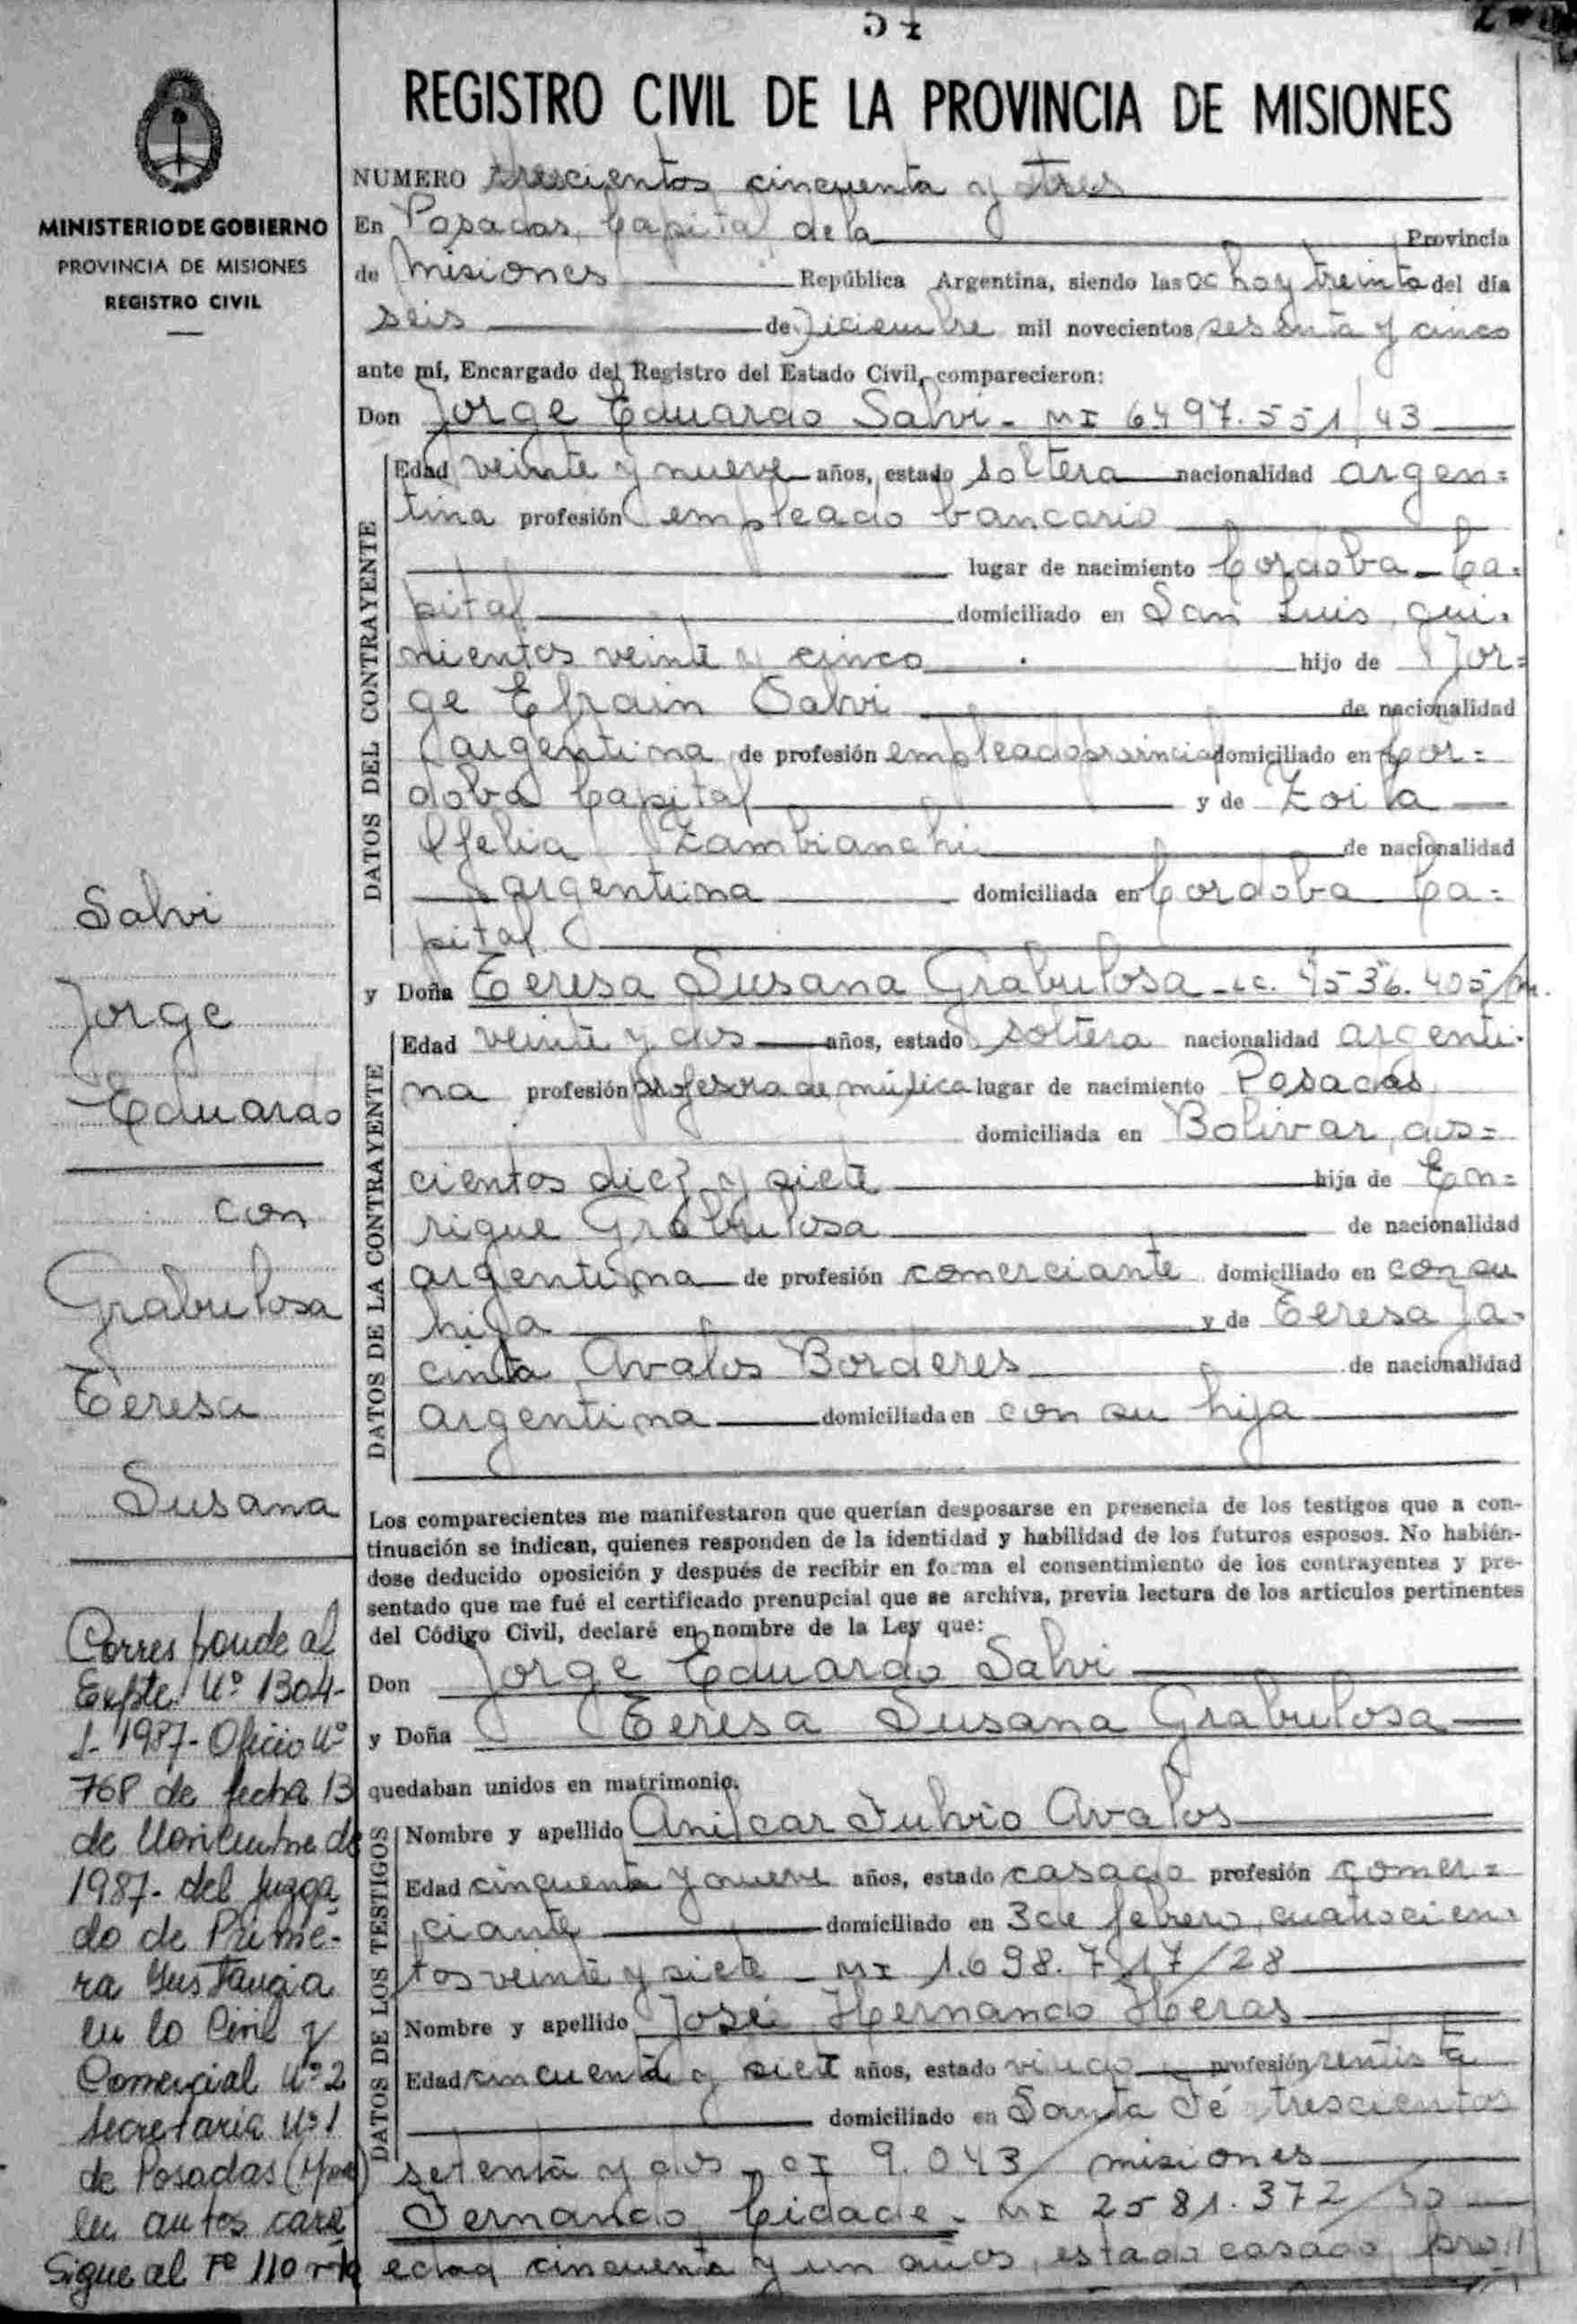 54
REGISTRO CIVIL DE LA PROVINCIA DE MISIONES
MINISTERIO DE GOBIERNO
PROVINCIA DE MISIONES
REGISTRO CIVIL
NUMERO trescientos cincuenta y tres
En Posadas, Capital de la Provincia
de Misiones República Argentina, siendo las ocho y treinta del día
seis de Diciembre mil novecientos sesenta y cinco
ante mí, Encargado del Registro del Estado Civil, comparecieron:
Don Jorge Eduardo Salvi - MI 6497.551/43
DATOS DEL CONTRAYENTE
Edad veinte y nueve años, estado soltera nacionalidad argen=
tina profesión empleado bancario
lugar de nacimiento Cordoba - Ca=
pital domiciliado en San Luis, qui-
nientos veinte y cinco hijo de Jor=
ge Efrain Salvi de nacionalidad
argentina de profesión empleado provincial domiciliado en Cor=
doba Capital y de Zoila
Ofelia Zambianchi de nacionalidad
argentina domiciliada en Cordoba Ca=
pital
y Doña Teresa Susana Grabulosa - LC. 4536.405/M.
DATOS DE LA CONTRAYENTE
Edad veinte y dos años, estado soltera nacionalidad argenti-
na profesión profesora de música lugar de nacimiento Posadas
domiciliada en Bolivar, dos=
cientos diez y siete hija de En=
rique Grabulosa de nacionalidad
argentina de profesión comerciante domiciliado en con su
hija y de Teresa Ja-
cinta Avalos Borderes de nacionalidad
argentina domiciliada en con su hija
Los comparecientes me manifestaron que querían desposarse en presencia de los testigos que a con-
tinuación se indican, quienes responden de la identidad y habilidad de los futuros esposos. No habién-
dose deducido oposición y después de recibir en forma el consentimiento de los contrayentes y pre-
sentado que me fué el certificado prenupcial que se archiva, previa lectura de los artículos pertinentes
del Código Civil, declaré en nombre de la Ley que:
Don Jorge Eduardo Salvi
y Doña Teresa Susana Grabulosa
quedaban unidos en matrimonio.
DATOS DE LOS TESTIGOS
Nombre y apellido Amilcar Fulvio Avalos
Edad cincuenta y nueve años, estado casado profesión comer=
ciante domiciliado en 3 de febrero, cuatrocien-
tos veinte y siete - MI 1.698.717/28
Nombre y apellido José Hernando Heras
Edad cincuenta y siete años, estado viudo profesión rentista
domiciliado en Santa Fé trescientos
setenta y dos - CI 9.043/misiones
Fernando Cidade - MI 2581.372/30
edad cincuenta y un años, estado casado, prof
Salvi
Jorge
Eduardo
con
Grabulosa
Teresa
Susana
Corresponde al
Expte. Nº 1304-
1987- Oficio Nº
768 de fecha 13
de Noviembre de
1987- del Juzga
do de Prime-
ra Instancia
en lo Civil y
Comercial Nº 2
Secretaria Nº 1
de Posadas (Mnes)
en autos cara
Sigue al Fº 110 vta